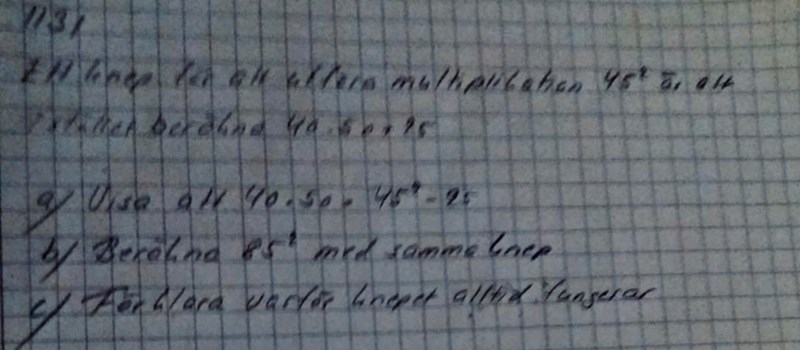 1131
Ett knep för att utföra multiplikation 45² är att
istället beräkna 40·50+25
a) Visa att 40·50 = 45²-25
b) Beräkna 85² med samma knep
c) Förklara varför knepet alltid fungerar